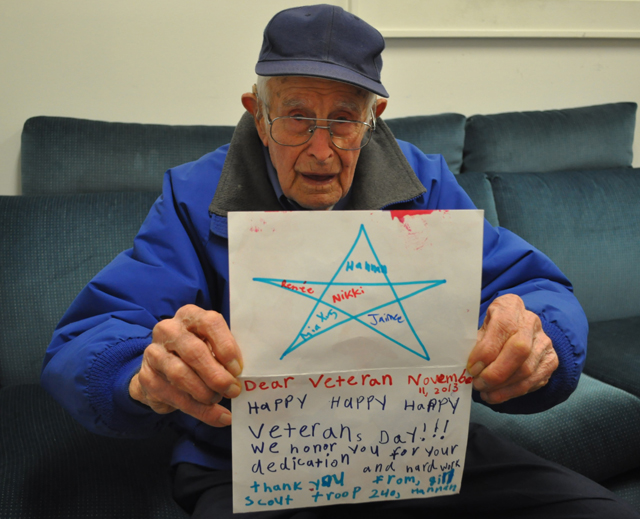 Hannah
Renée
Nikki
Jaimie
Dear Veteran November
11, 2013
Happy Happy Happy
Veterans Day!!!
We honor you for your
dedication and hard work
thank you from, girl
scout troop 240,